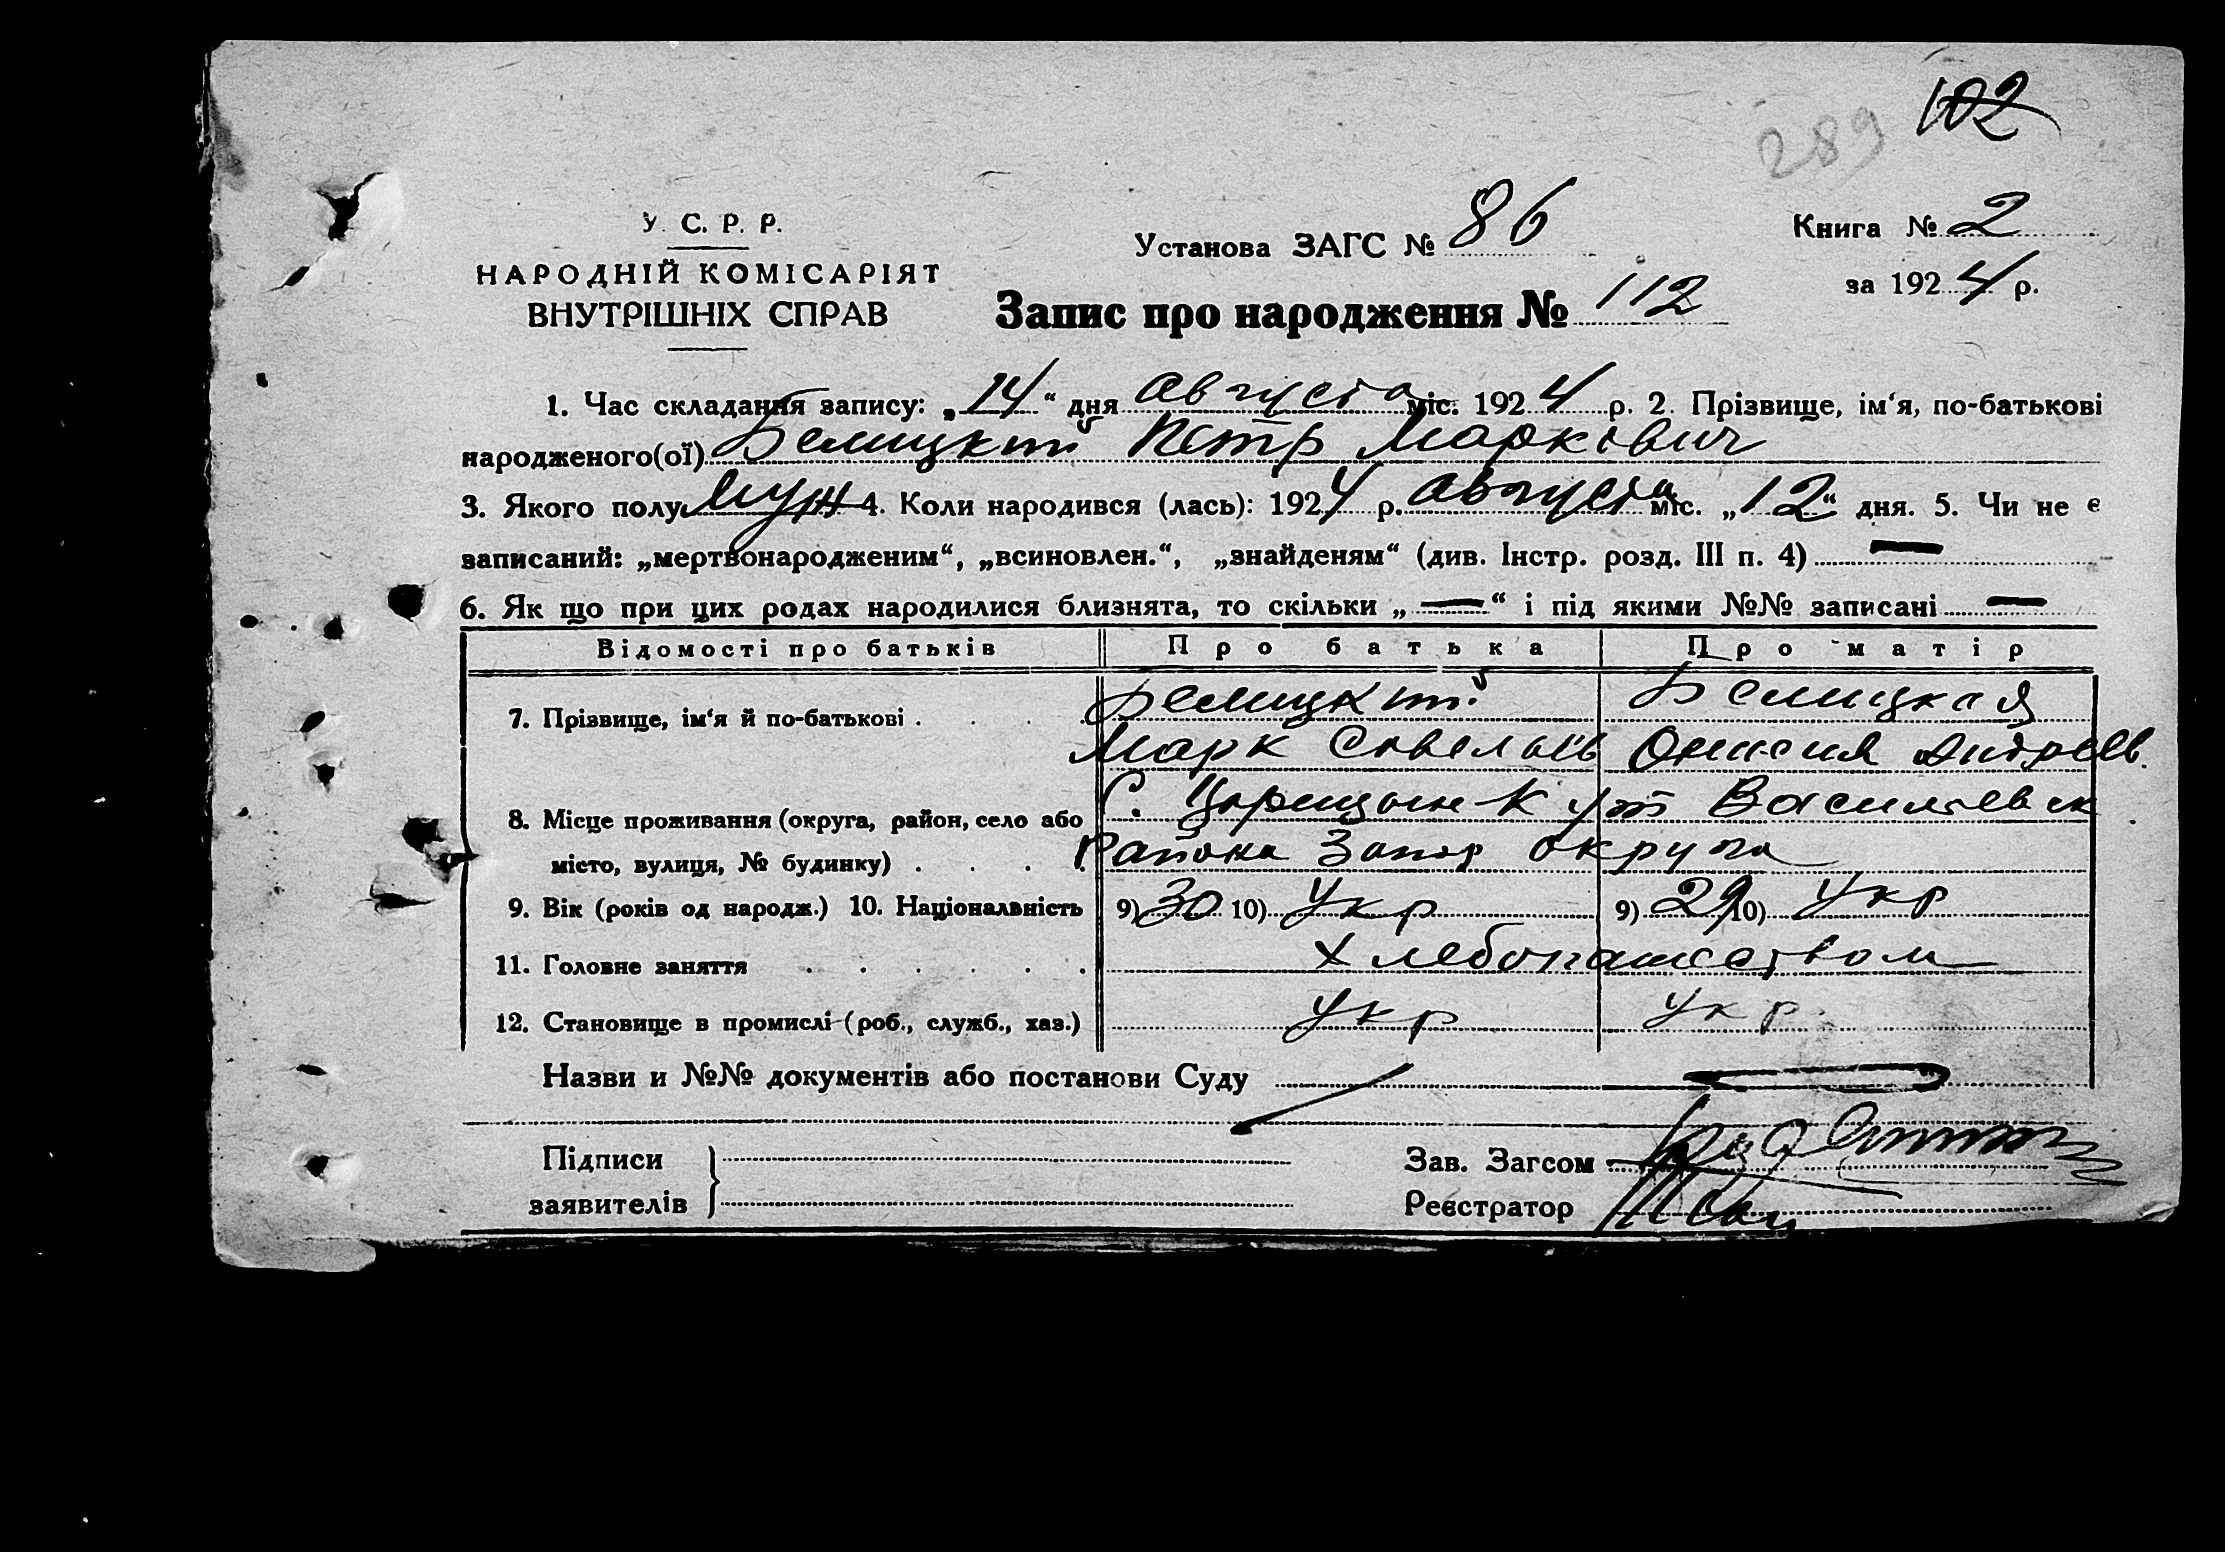 102
289
У. С. Р. Р.
НАРОДНІЙ КОМІСАРІЯТ
ВНУТРІШНІХ СПРАВ
Установа ЗАГС № 86
Книга № 2
за 1924 р.
Запис про народження № 112
1. Час складання запису: „14“ дня августа міс. 1924 р. 2. Прізвище, ім‘я, по-батькові
народженого(ої) Белицкий Петр Маркович
3. Якого полу муж 4. Коли народився (лась): 1924 р. августа міс. „12“ дня. 5. Чи не є
записаний: „мертвонародженим“, „всиновлен.“, „знайденям“ (див. Інстр. розд. III п. 4) —
6. Як що при цих родах народилися близнята, то скільки „—“ і під якими №№ записані —
Відомості про батьків Про батька Про матір
7. Прізвище, ім‘я й по-батькові . . . . Белицкий Белицкая
Марк Савельев Анисия Андреев.
С. Царицын Кут Васильевск
8. Місце проживання (округа, район, село або
місто, вулиця, № будинку) . . . . Района Запор округа
9. Вік (років од народж.) 10. Національність 9) 30 10) Укр 9) 29 10) Укр
11. Головне заняття . . . . . . Хлебопашеством
12. Становище в промислі (роб., служб., хаз.) Укр Укр
Назви и №№ документів або постанови Суду
Підписи
заявителів
Зав. Загсом
Реєстратор